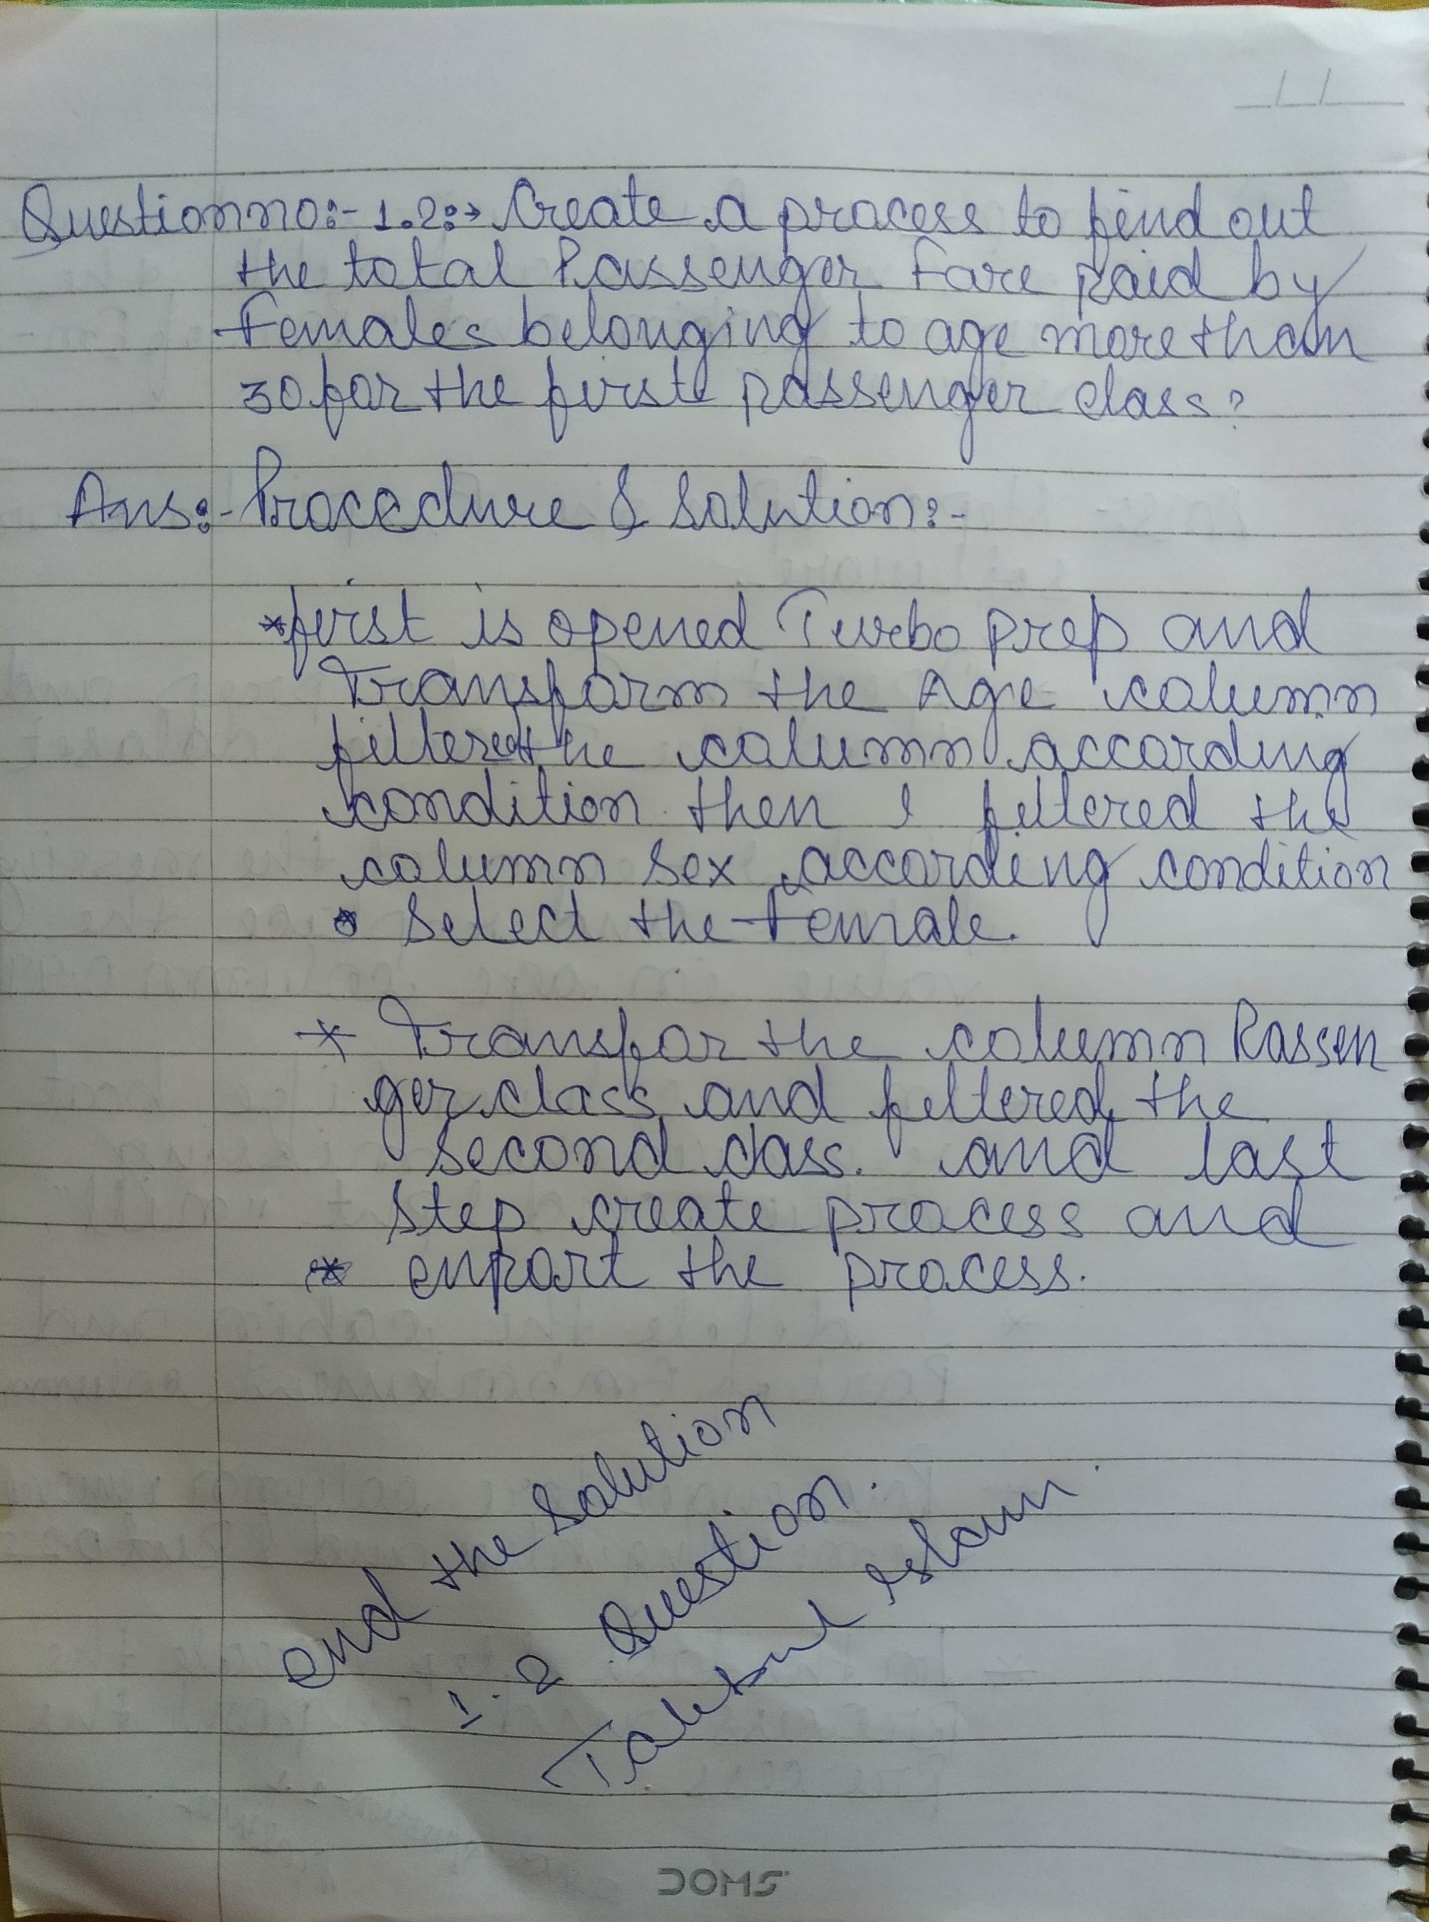 Question no:- 1.2:→ Create a process to find out
the total Passenger Fare Paid by
Females belonging to age more than
30 for the first passenger class?
Ans:- Procedure & Solution:-
*first is opened Turbo prep and
Transform the Age column
filtered the column according
condition then I filtered the
column Sex according condition
• Select the Female.
* Transfor the column Passen
ger class and filtered the
second class. and last
step create process and
* enport the process.
end the Solution
1.2 Question.
Islam
DOMS